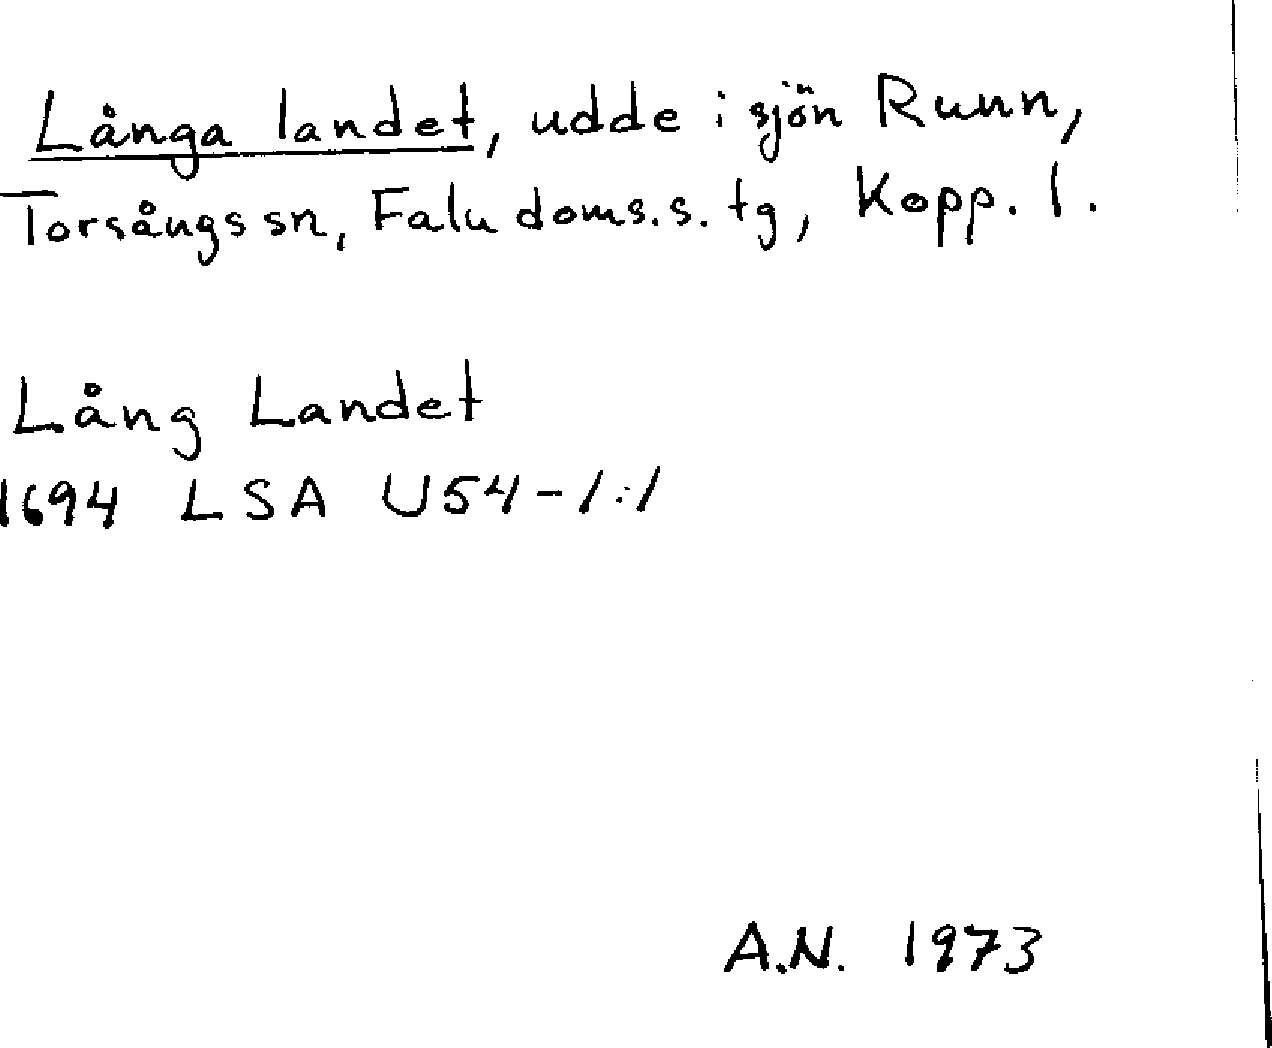 Långa landet, udde i sjön Runn,
Torsångs sn, Falu doms.s. tg, Kopp. l.
Lång Landet
1694 LSA U54-1:1
A.N. 1973